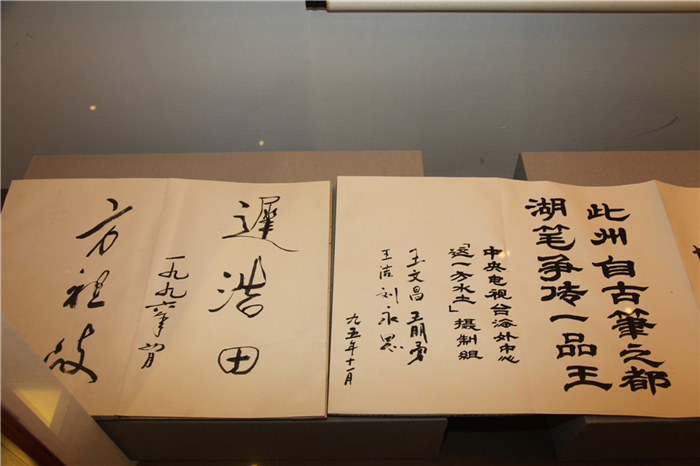 此州自古筆之都
湖笔争传一品王
中央电视台海外中心
「这一方水土」摄制组
王文昌 王朋勇
王洁 刘永恩
九五年十一月
遲浩田
一九九六年
方祖岐